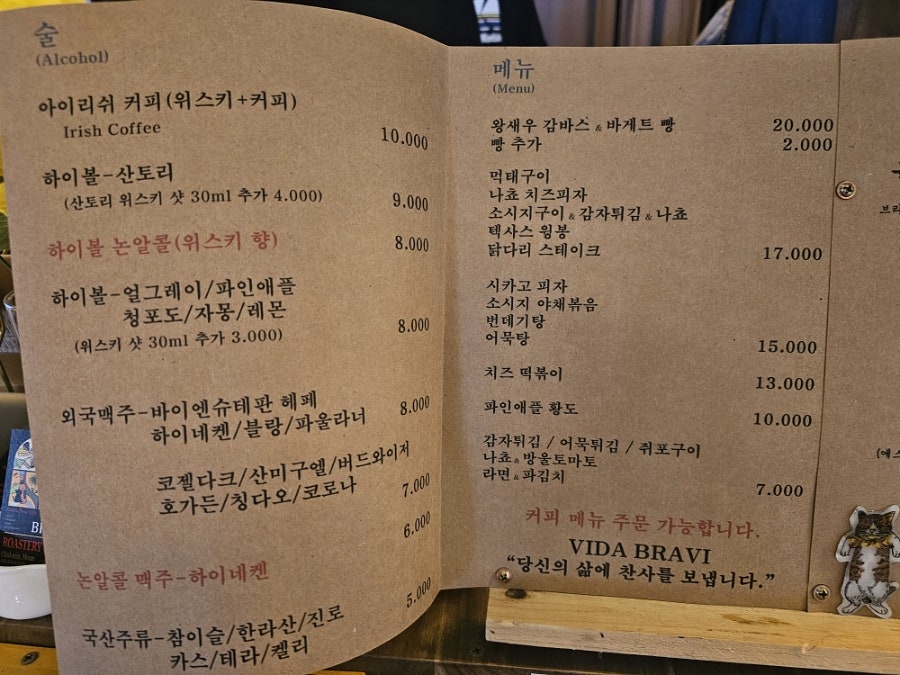 술
(Alcohol)
아이리쉬 커피(위스키+커피)
Irish Coffee
10.000
하이볼-산토리
(산토리 위스키 샷 30ml 추가 4.000)
9.000
하이볼 논알콜(위스키 향)
8.000
하이볼-얼그레이/파인애플
청포도/자몽/레몬
8.000
(위스키 샷 30ml 추가 3.000)
외국맥주-바이엔슈테판 헤페
8.000
하이네켄/블랑/파울라너
코젤다크/산미구엘/버드와이저
호가든/칭다오/코로나
7.000
6.000
논알콜 맥주-하이네켄
5.000
국산주류-참이슬/한라산/진로
카스/테라/켈리
메뉴
(Menu)
왕새우 감바스 & 바게트 빵 20.000
빵 추가 2.000
먹태구이
나쵸 치즈피자
소시지구이 & 감자튀김 & 나쵸
텍사스 윙봉
닭다리 스테이크 17.000
시카고 피자
소시지 야채볶음
번데기탕
어묵탕 15.000
치즈 떡볶이 13.000
파인애플 황도 10.000
감자튀김 / 어묵튀김 / 쥐포구이
나쵸 & 방울토마토
라면 & 파김치 7.000
커피 메뉴 주문 가능합니다.
VIDA BRAVI
“당신의 삶에 찬사를 보냅니다.”
ROASTERY